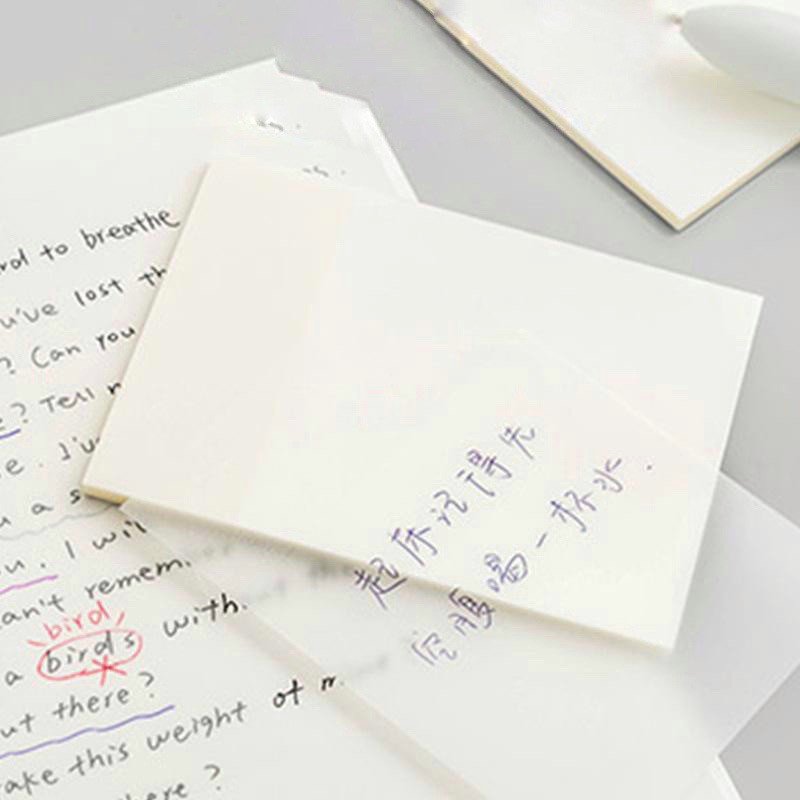 to breathe
lost
? Can you
? Tell
e. I've
a
u. I will
can't remem
bird
a birds with
out there?
take this weight of
here?
起床记得先
空腹喝一杯水.